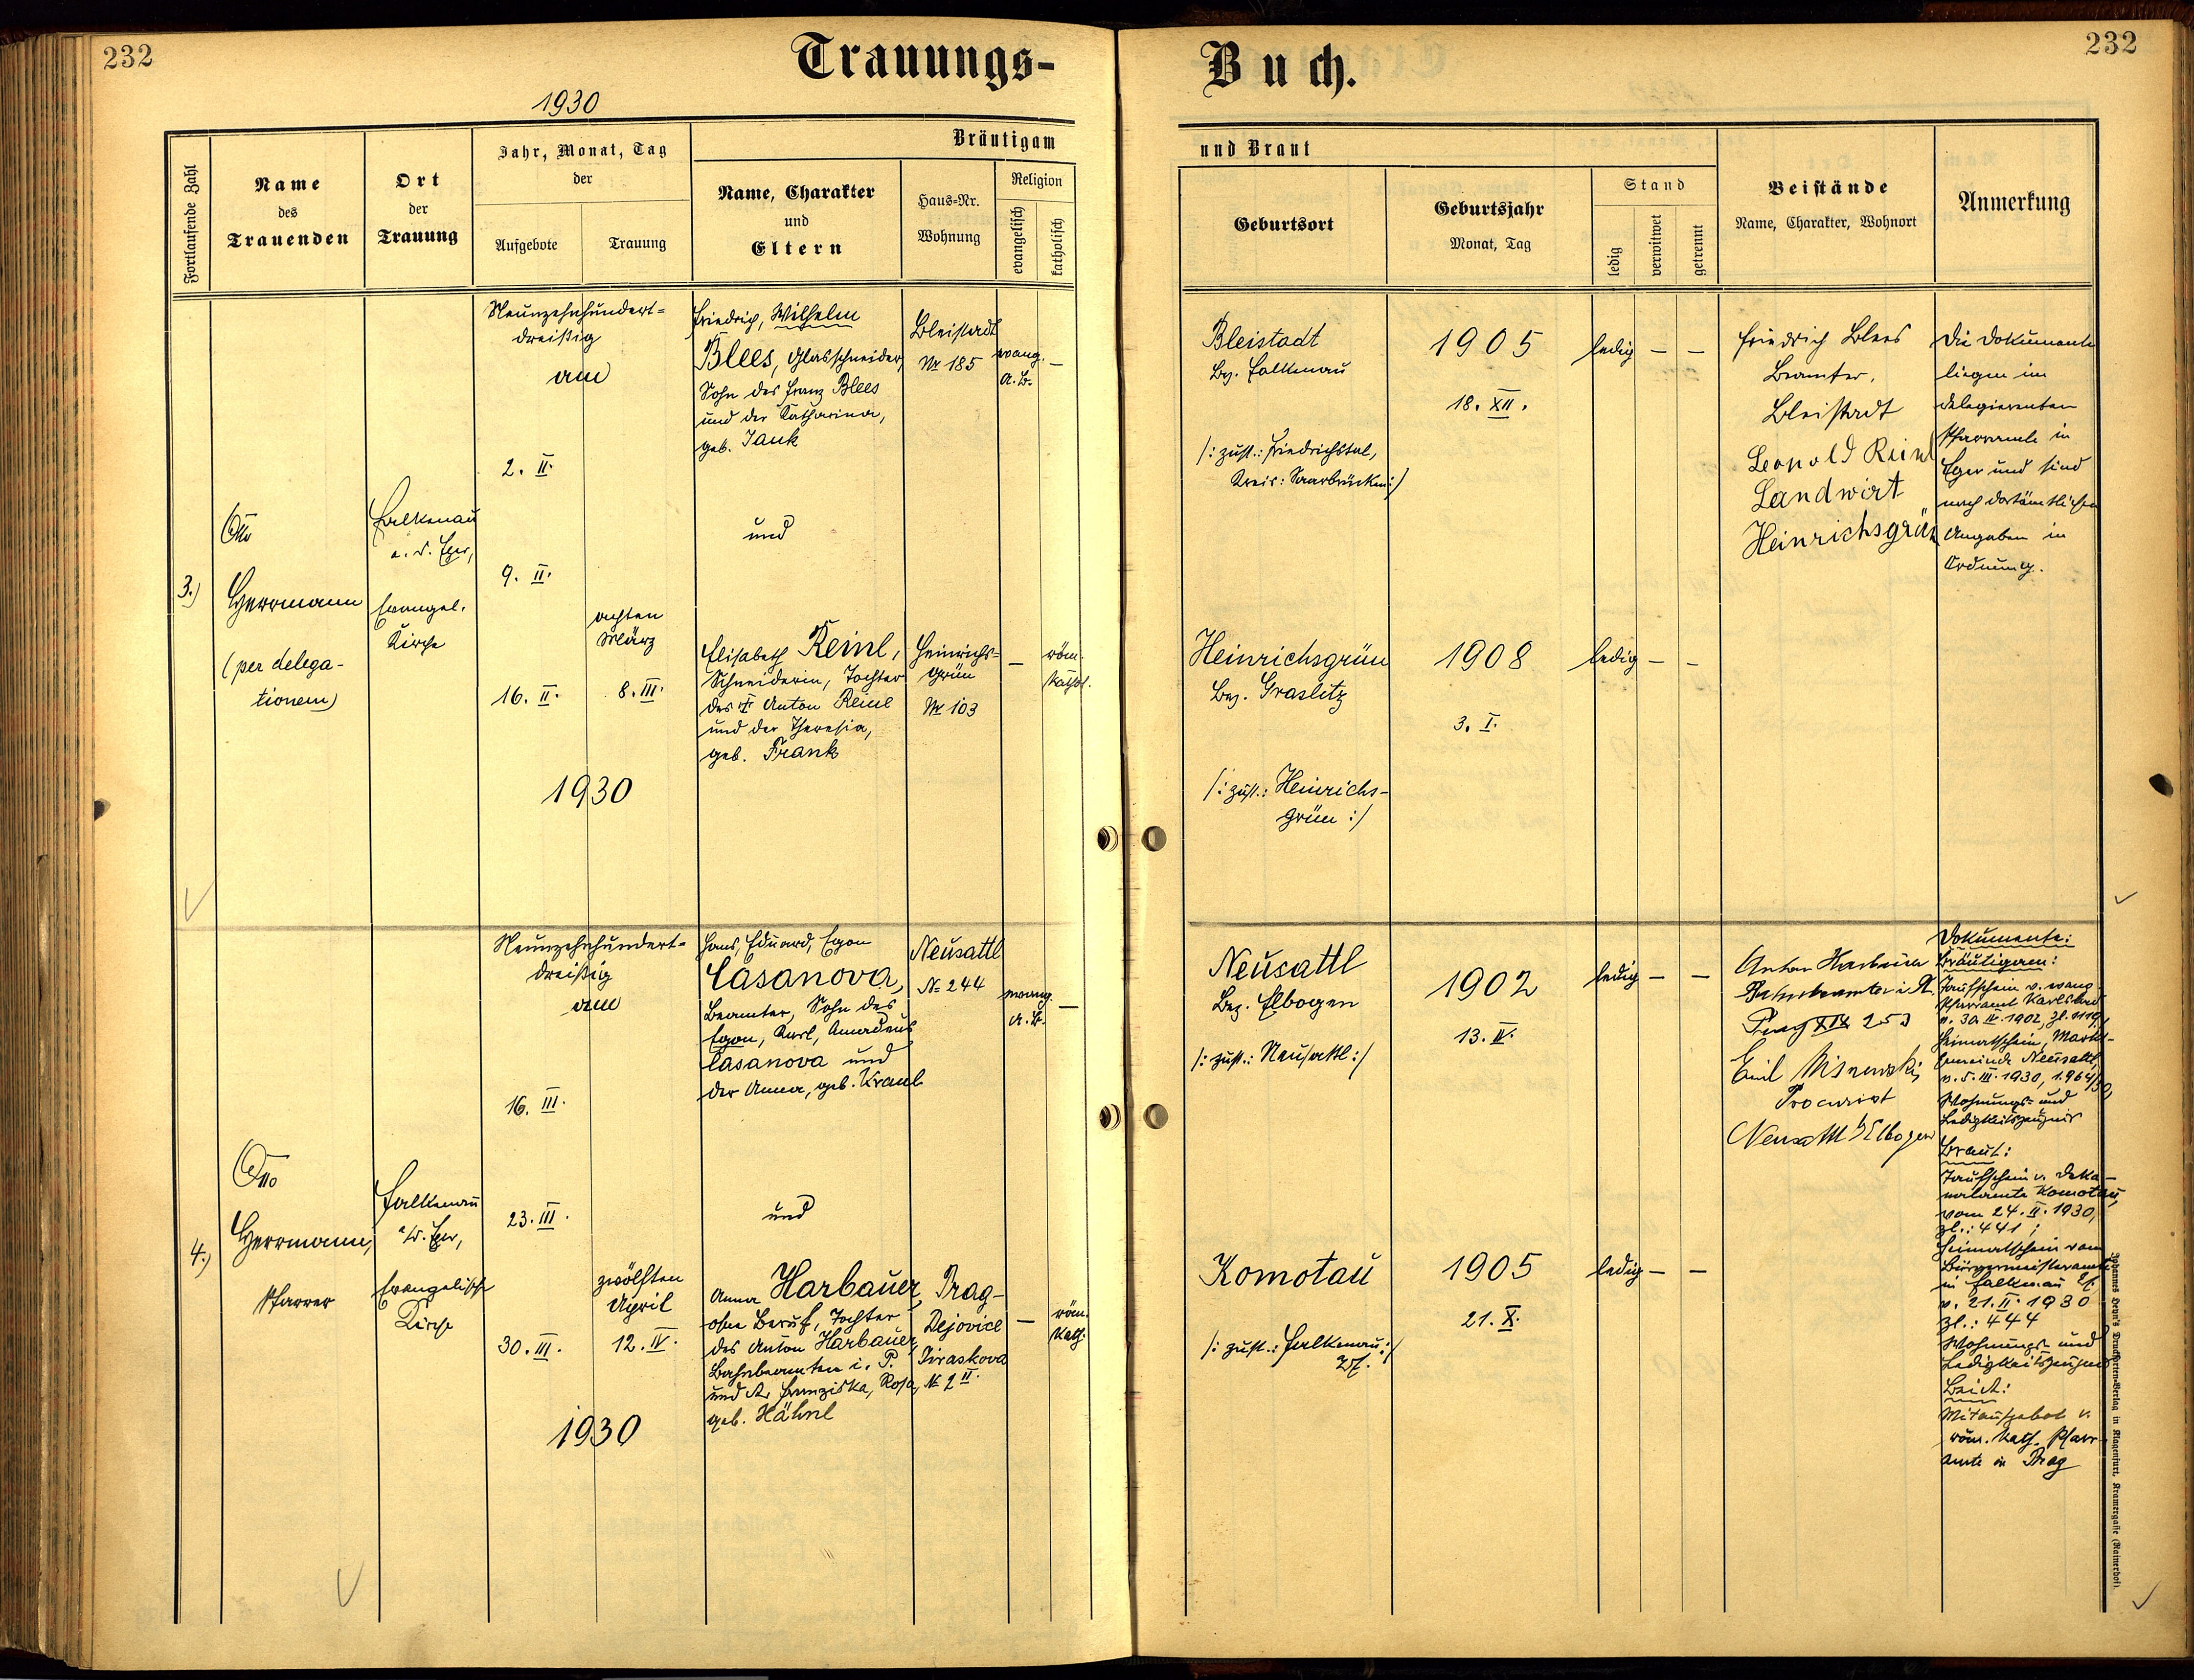 232
Trauungs-
Buch.
232
1930
Fortlaufende Zahl
Name
des
Trauenden
Ort
der
Trauung
Jahr, Monat, Tag
der
Aufgebote
Trauung
Bräutigam
Name, Charakter
und
Eltern
Haus-Nr.
Wohnung
Religion
evangelisch
katholisch
und Braut
Geburtsort
Geburtsjahr
Monat, Tag
Stand
ledig
verwitwet
getrennt
Beistände
Name, Charakter, Wohnort
Anmerkung
3.)
Otto
Herrmann
(per delega-
tionem)
Falkenau
a. d. Eger,
Evangel.
Kirche
Neunzehnhundert-
dreißig
am
2. II.
9. II.
16. II.
achten
März
8. III.
1930
Friedrich, Wilhelm
Blees, Glasschneider,
Sohn des Franz Blees
und der Katharina,
geb. Jank
Bleistadt
Nr 185
evang.
A. B.
—
und
Elisabeth Reinl,
Schneiderin, Tochter
des † Anton Reinl
und der Theresia,
geb. Frank
Heinrichs-
grün
Nr 103
—
röm.
kathol.
Bleistadt
Bez. Falkenau
/: zust.: Friedrichstal,
Kreis: Saarbrücken :/
1905
18. XII.
ledig — —
Friedrich Blees
Beamter,
Bleistadt
Leopold Reinl
Landwirt
Heinrichsgrün
Die Dokumente
liegen im
delegierenden
Pfarramte in
Eger und sind
nach dortämtlichen
Angaben in
Ordnung.
Heinrichsgrün
Bez. Graslitz
/: zust.: Heinrichs-
grün :/
1908
3. I.
ledig — —
4.)
Otto
Herrmann,
Pfarrer
Falkenau
a/d. Eger,
Evangelische
Kirche
Neunzehnhundert-
dreißig
am
16. III.
23. III.
30. III.
zwölften
April
12. IV.
1930
Hans, Eduard, Egon
Casanova,
Beamter, Sohn des
Egon, Karl, Amadeus
Casanova und
der Anna, geb. Kraul
Neusattl
№ 244
evang.
A. B.
—
und
Anna Harbauer,
ohne Beruf, Tochter
des Anton Harbauer,
Bahnbeamten i. P.
und der Franziska, Rosa,
geb. Hähnl
Prag-
Dejovice
Jiraskova
№ 2 II.
—
röm.
kath.
Neusattl
Bez. Elbogen
/: zust.: Neusattl :/
1902
13. IV.
ledig — —
Anton Harbauer
Bahnbeamter i. R.
Prag XIX 253
Emil
Procurist
Neusattl b/Elbogen
Dokumente:
Bräutigam:
Taufschein v. evang.
Pfarramt Karlsbad
v. 30. IV. 1902, Zl. 119,
Heimatschein, Markt-
gemeinde Neusattl,
v. 5. III. 1930, 1.964/30,
Wohnungs- und
Ledigkeitszeugnis
Braut:
Taufschein v. Deka-
natamte Komotau,
vom 24. II. 1930,
Zl.: 441;
Heimatschein vom
Bürgermeisteramte
in Falkenau
v. 21. II. 1930
Zl.: 444
Wohnungs- und
Ledigkeitszeugnis
Beide:
Mitaufgebot v.
röm. kath. Pfarr-
amte in Prag
Komotau
/: zust.: Falkenau :/
1905
21. X.
ledig — —
Johannes Heyn's Drucksorten-Verlag in Klagenfurt, Kramergasse (Rainerhof).